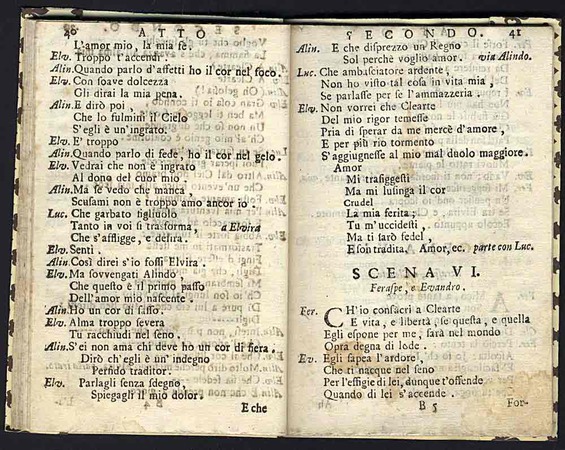 40 ATTO
L'amor mio, la mia fe.
Elv. Troppo t'accendi.
Alin. Quando parlo d'affetti ho il cor nel foco.
Elv. Con soave dolcezza
Gli dirai la mia pena.
Alin. E dirò poi,
Che lo fulmini il Cielo
S'egli è un'ingrato.
Elv. E' troppo
Alin. Quando parlo di fede, ho il cor nel gelo.
Elv. Vedrai che non è ingrato
Al dono del cuor mio
Alin. Ma se vedo che manca,
Scusami non è troppo amo ancor io.
Luc. Che garbato figliuolo
Tanto in voi si trasforma, a Elvira
Che s'affligge, e delira.
Elv. Senti.
Alin. Così direi s'io fossi Elvira.
Elv. Ma sovvengati Alindo,
Che questo è il primo passo
Dell'amor mio nascente.
Alin. Ho un cor di sasso.
Elv. Alma troppo severa
Tu racchiudi nel seno.
Alin. S'ei non ama chi deve ho un cor di fiera.
Dirò ch'egli è un'indegno
Perfido traditor.
Elv. Parlagli senza sdegno,
Spiegagli il mio dolor.
E che
SECONDO. 41
Alin. E che disprezzo un Regno
Sol perche voglio amor. via Alindo.
Luc. Che ambasciatore ardente,
Non ho visto tal cosa in vita mia,
Se parlasse per se l'ammazzeria.
Elv. Non vorrei che Clearte
Del mio rigor temesse
Pria di sperar da me mercè d'amore,
E per più rio tormento
S'aggiugnesse al mio mal duolo maggiore.
Amor
Mi trafiggesti
Ma mi lusinga il cor
Crudel
La mia ferita;
Tu m'uccidesti,
Ma ti sarò fedel,
E son tradita. Amor, ec. parte con Luc.
SCENA VI.
Feraspe, e Evandro.
Fer. CH'io consacri a Clearte
E vita, e libertà, se questa, e quella
Egli espone per me, sarà nel mondo
Opra degna di lode.
Ev. Egli sapea l'ardore,
Che ti nacque nel seno
Per l'effigie di lei, dunque t'offende
Quando di lei s'accende.
B 5 For-